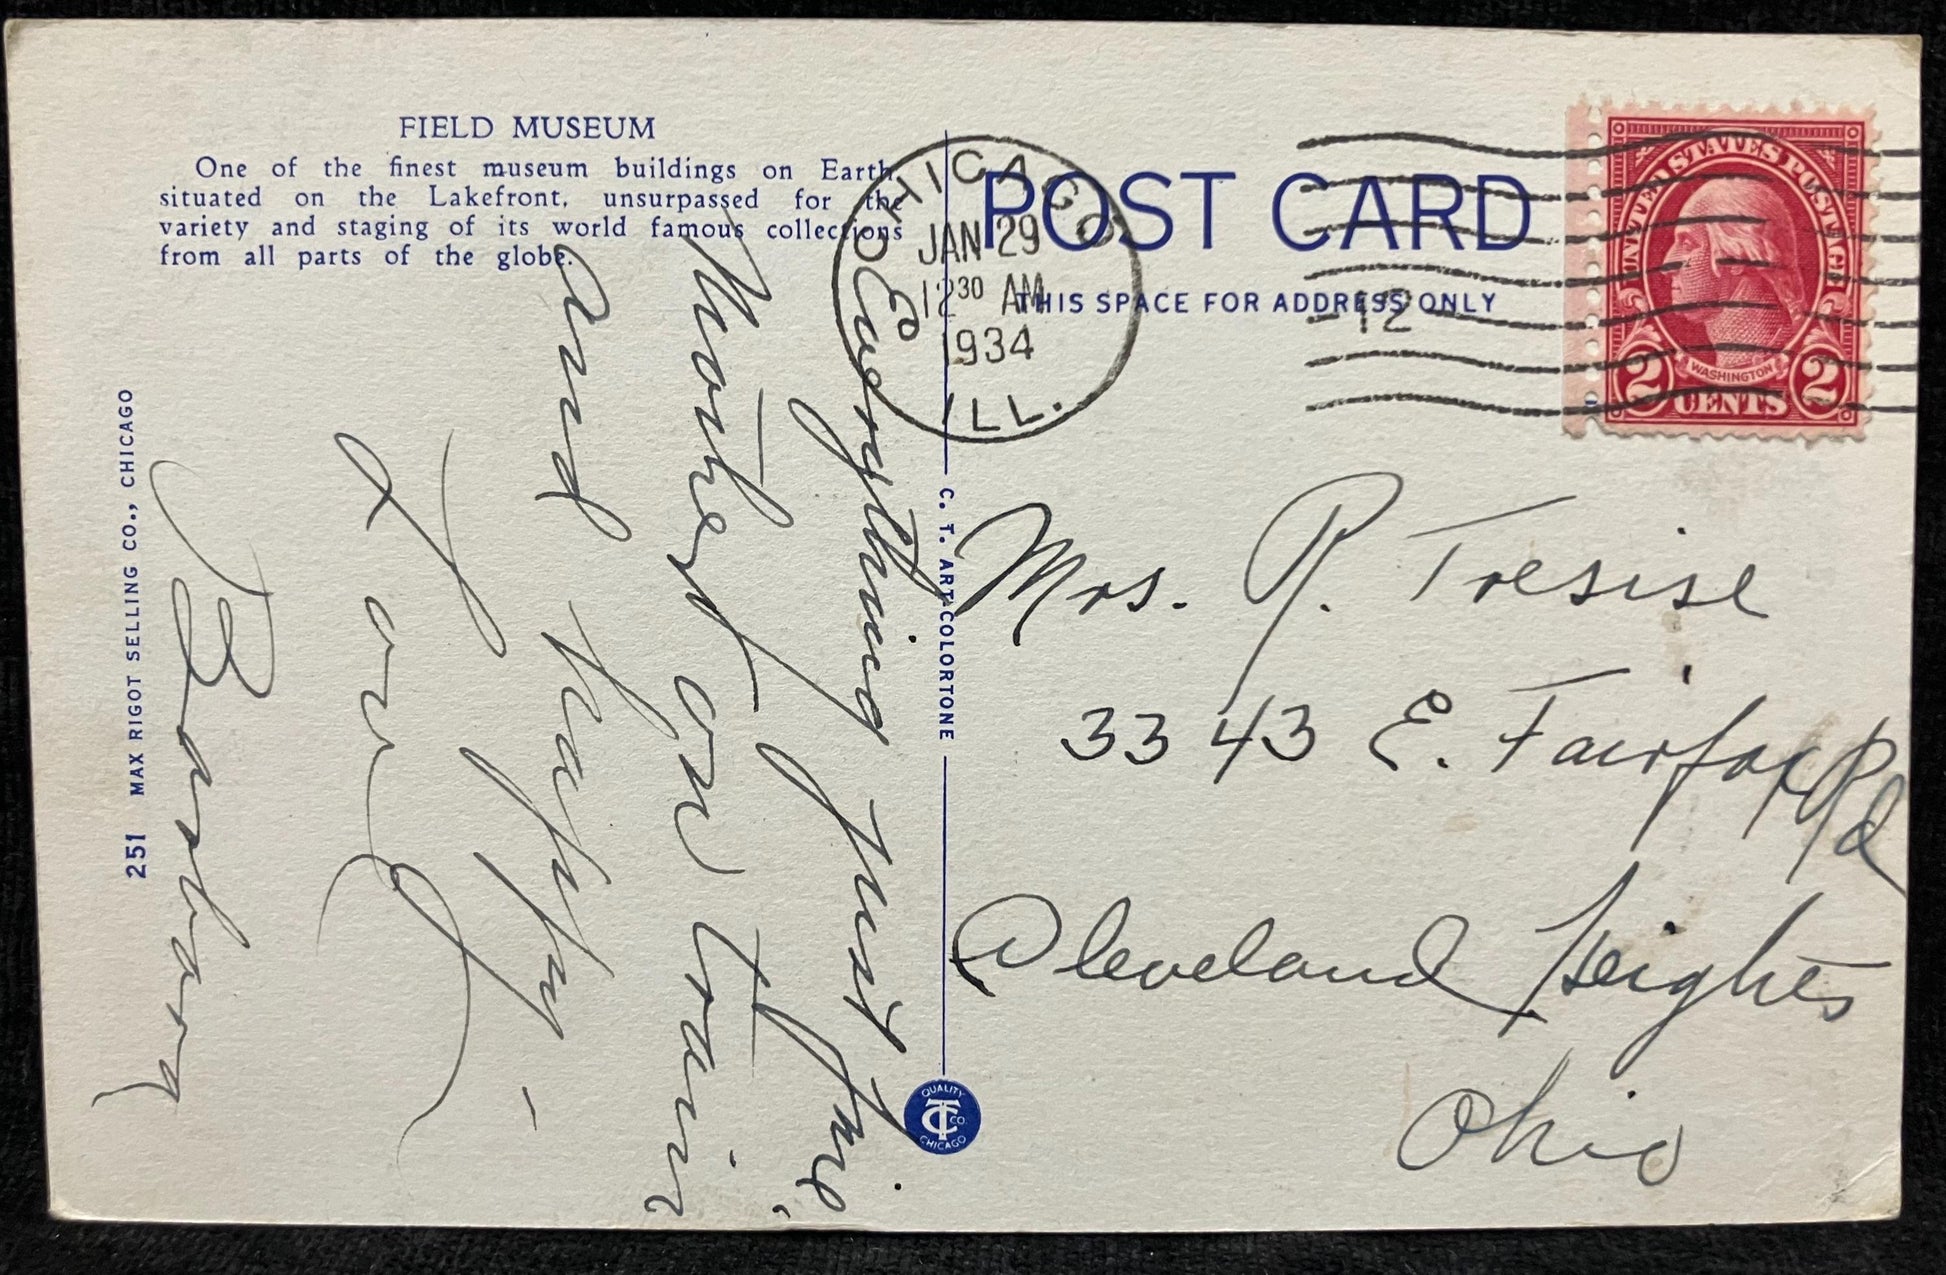 FIELD MUSEUM
One of the finest museum buildings on Earth
situated on the Lakefront, unsurpassed for the
variety and staging of its world famous collections
from all parts of the globe.
251 MAX RIGOT SELLING CO., CHICAGO
Everything just fine.
Mother on train
and happy -
Love
Barbara
CHICAGO
JAN 29
12 30 AM
1934
ILL.
C. T. ART-COLORTONE
QUALITY
CT CO.
CHICAGO
POST CARD
THIS SPACE FOR ADDRESS ONLY
12
UNITED STATES POSTAGE
WASHINGTON
2 CENTS 2
Mrs. R. Tresise
3343 E. Fairfax Rd
Cleveland Heights
Ohio